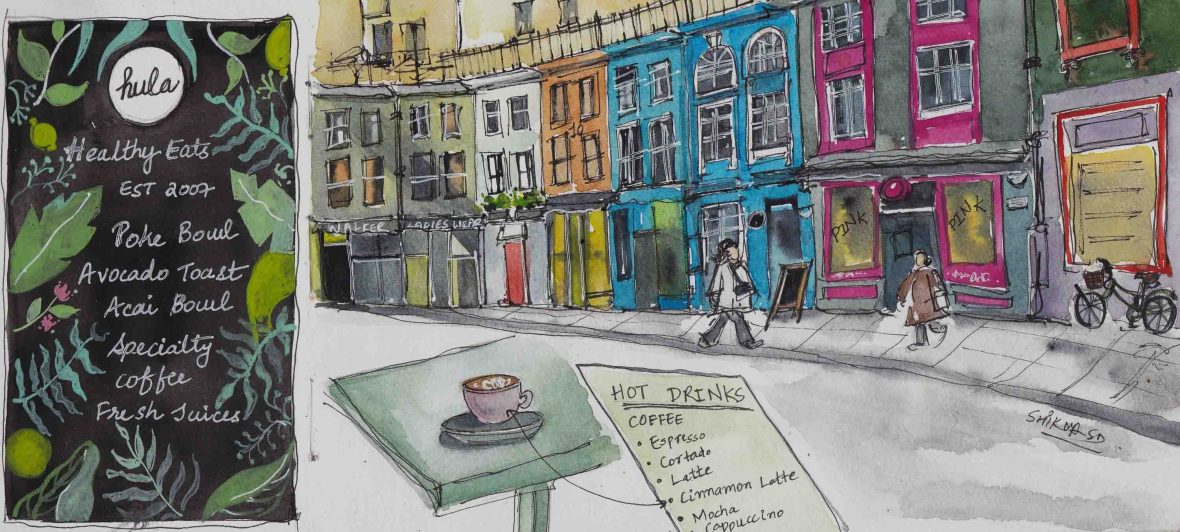 hula
Healthy Eats
EST 2007
Poke Bowl
Avocado Toast
Acai Bowl
Specialty
coffee
Fresh Juices
WALKER
PINK
PINK
HOT DRINKS
COFFEE
• Espresso
• Cortado
• Latte
• Cinnamon Latte
• Mocha
Cappuccino